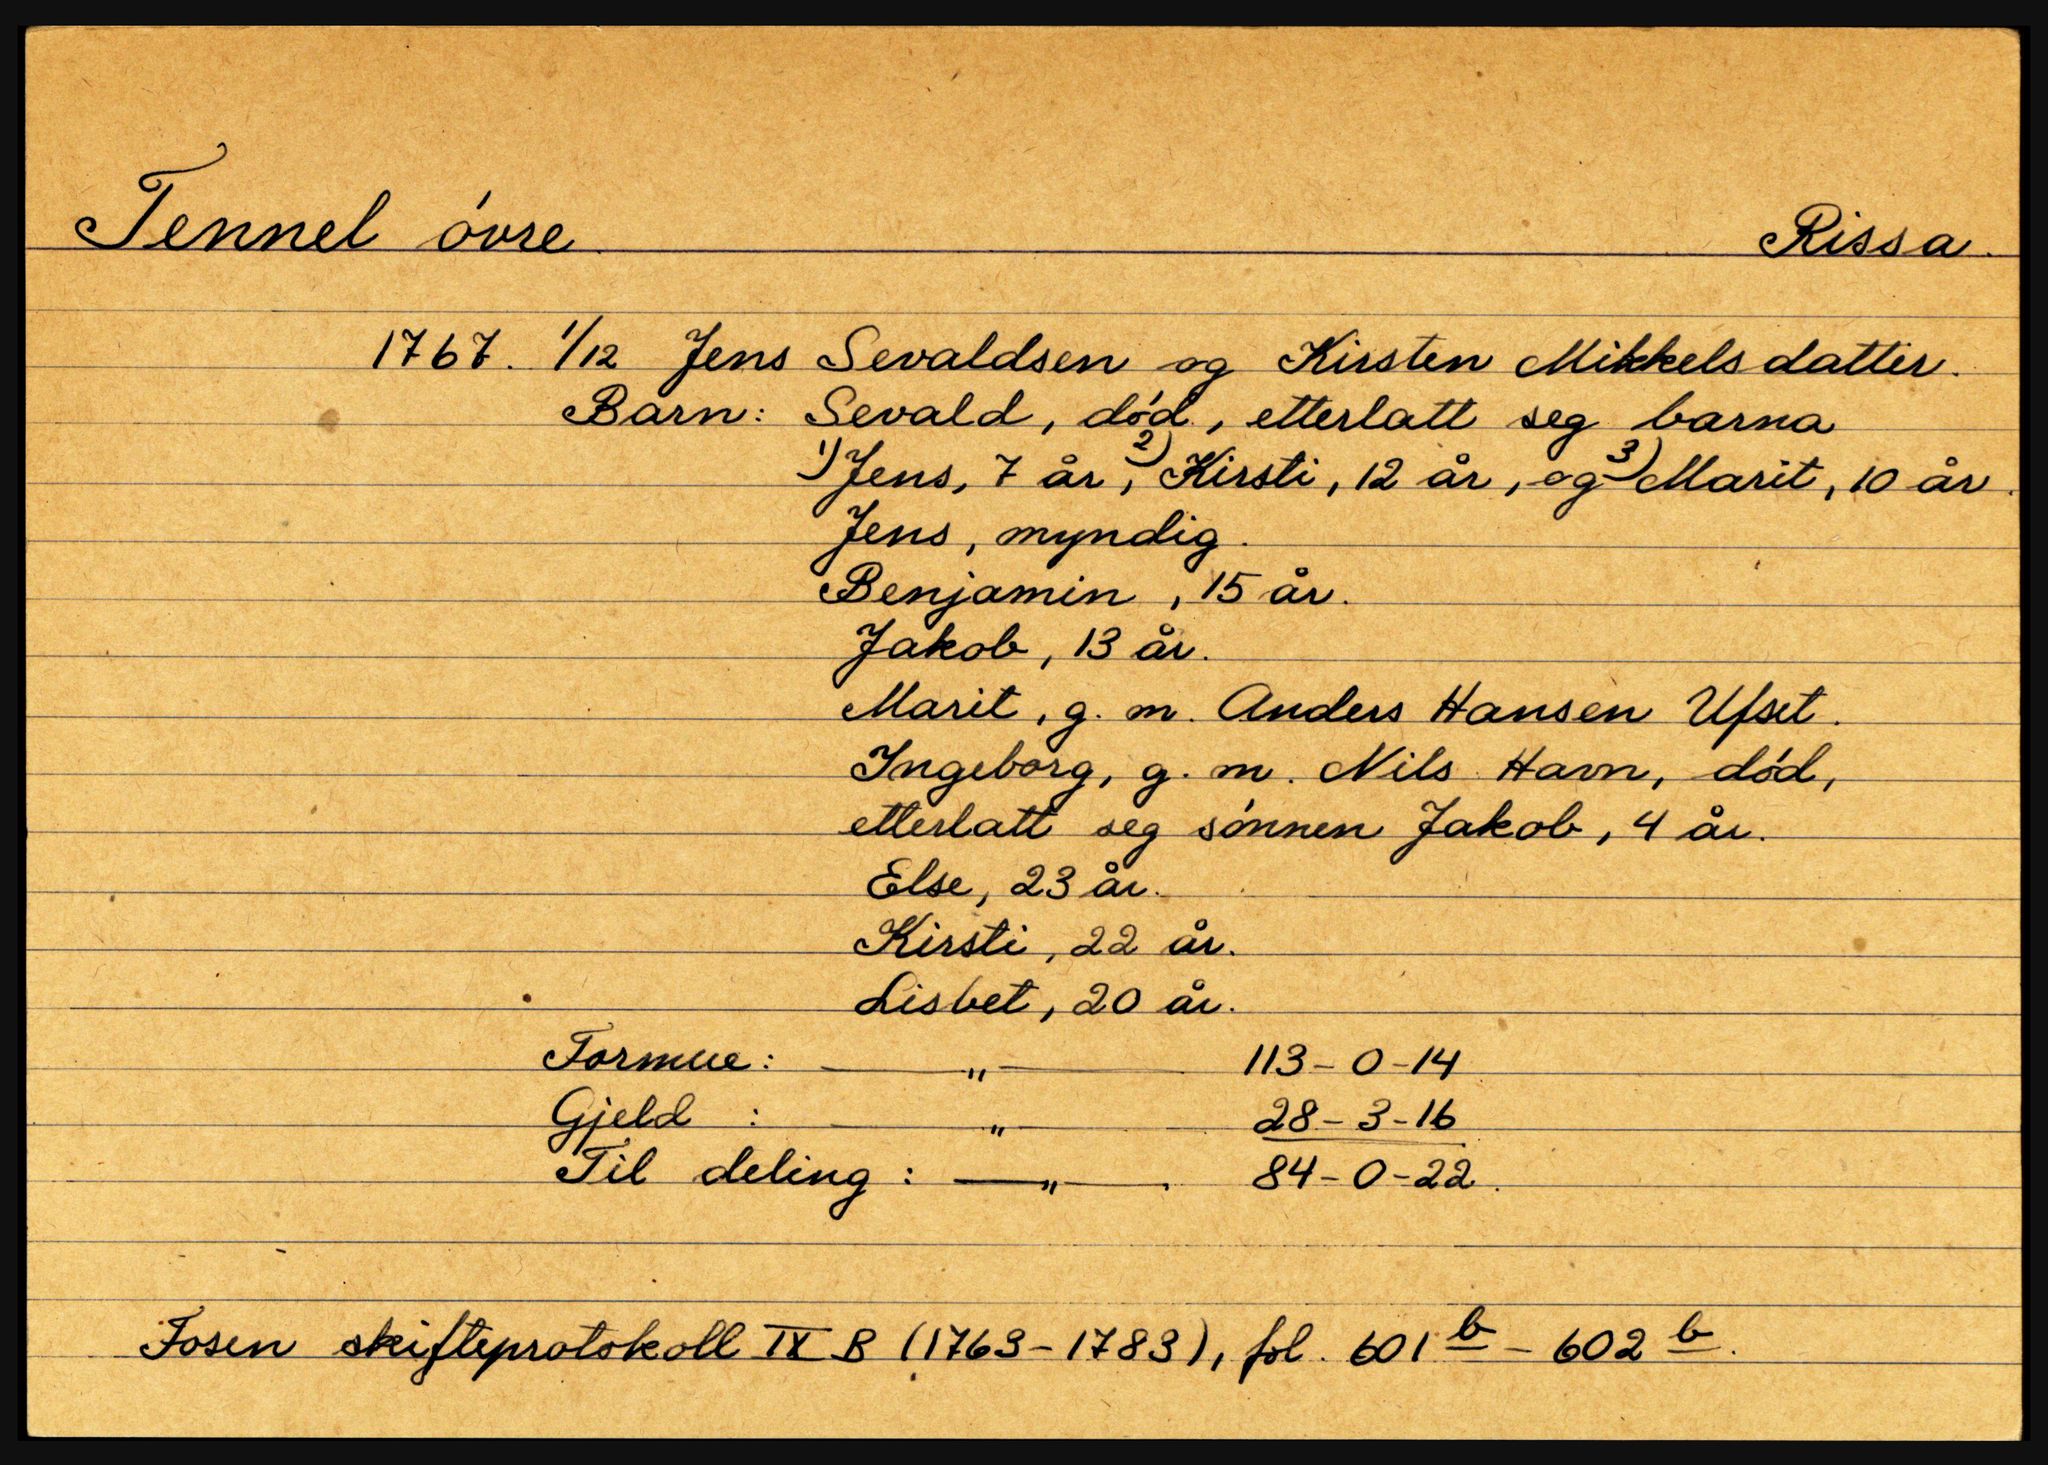 Tennel övre. Rissa.
1767. 1/12 Jens Sevaldsen og Kirsten Mikkelsdatter.
Barn: Sevald, död, etterlatt seg barna
1) Jens, 7 år, 2) Kirsti, 12 år, og 3) Marit, 10 år.
Jens, myndig.
Benjamin, 15 år.
Jakob, 13 år.
Marit, g. m. Anders Hansen Ufset.
Ingeborg, g. m. Nils Havn, död,
etterlatt seg sönnen Jakob, 4 år.
Else, 23 år.
Kirsti, 22 år.
Lisbet, 20 år.
Formue: —„— 113-0-14
Gjeld : —„— 28-3-16
Til deling : —„— . 84-0-22.
Fosen skifteprotokoll IX B (1763-1783), fol. 601 b - 602 b.